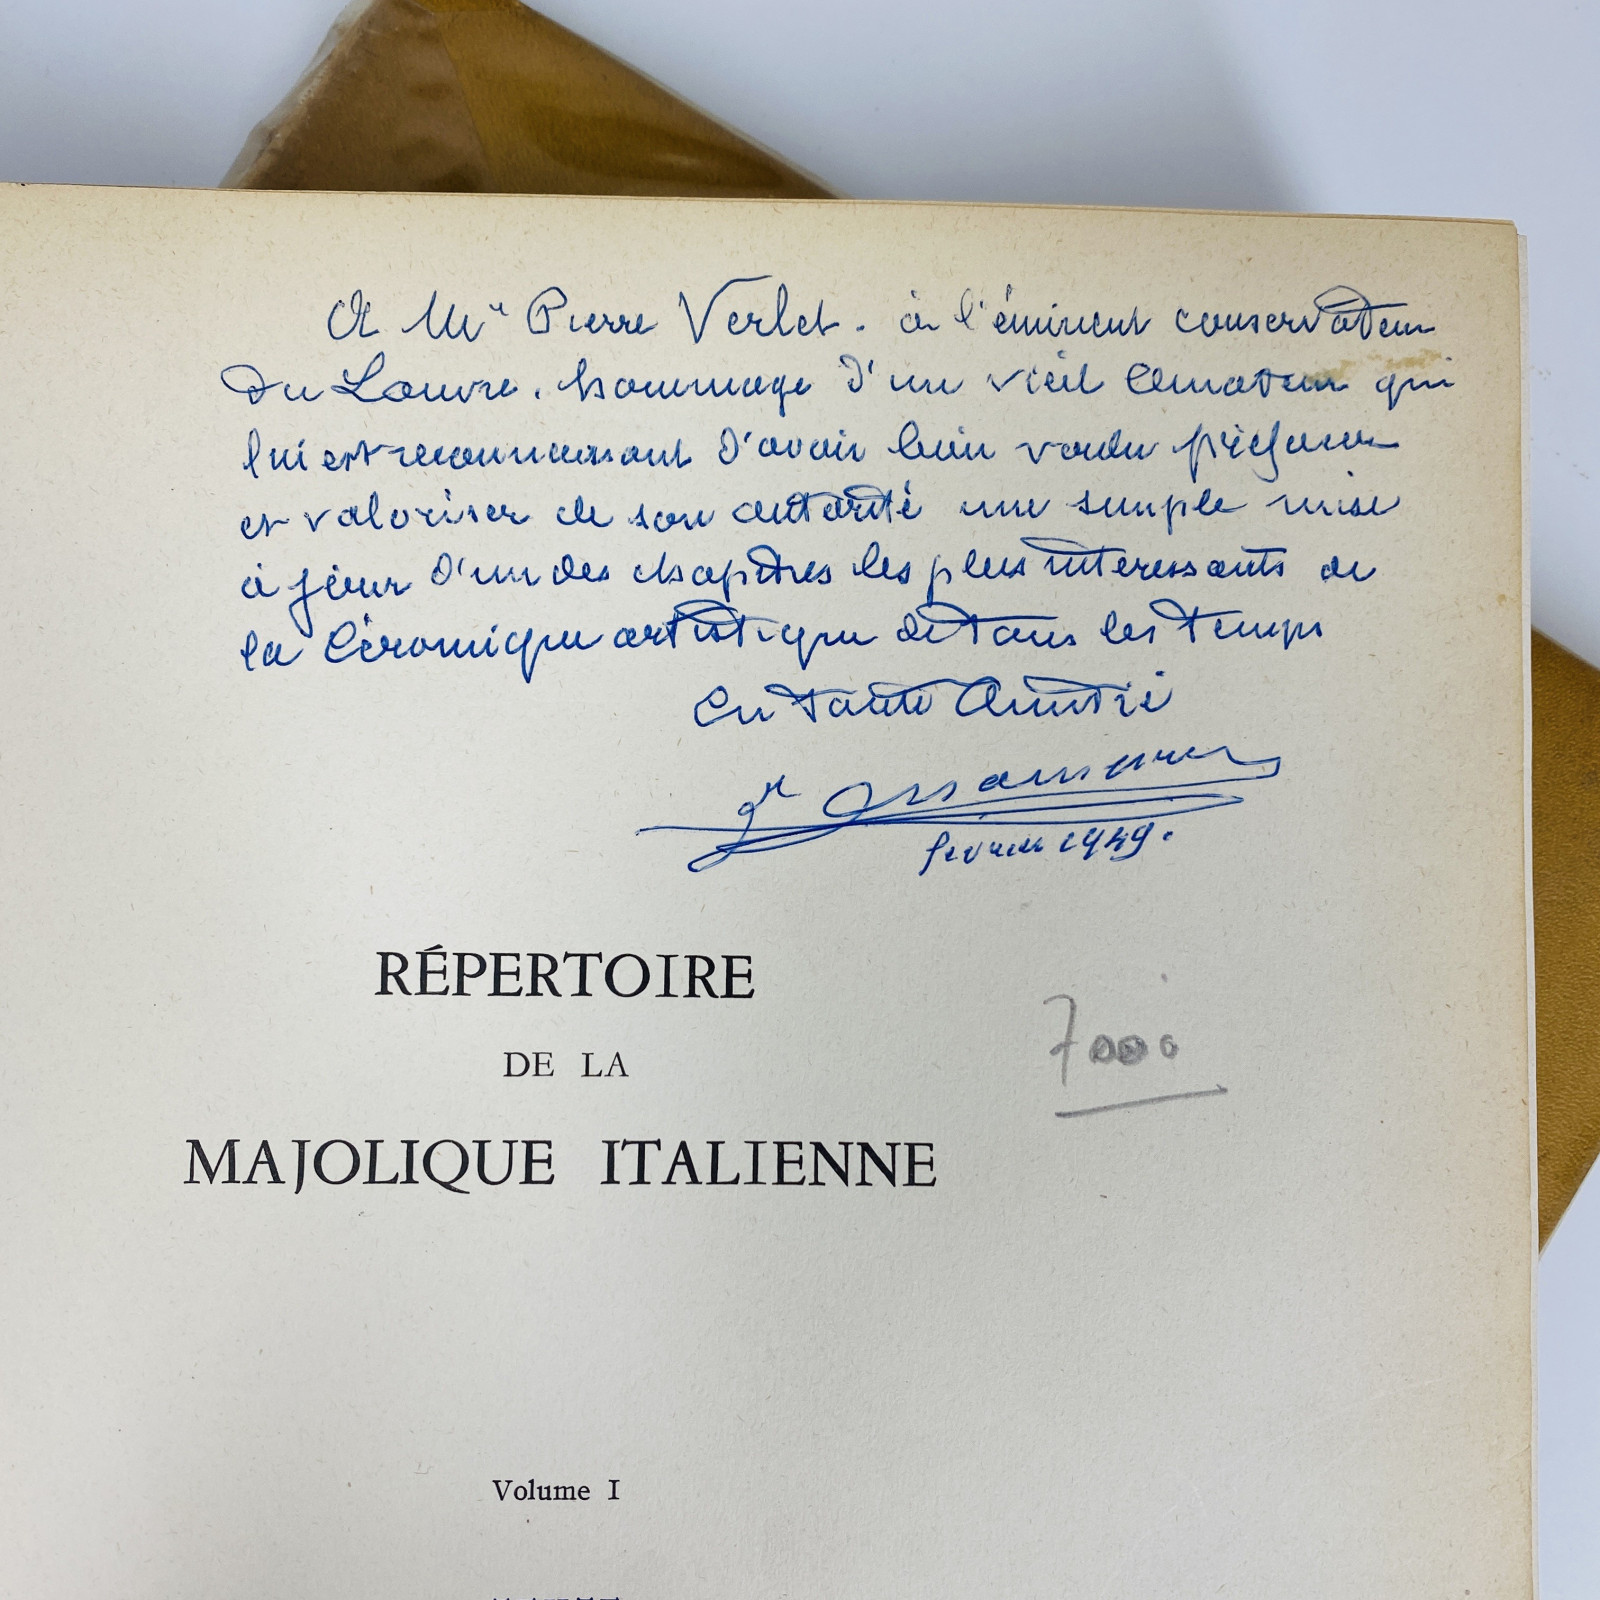 A Mr Pierre Verlet. à l'éminent conservateur
du Louvre. hommage d'un vieil amateur qui
lui est reconnaissant d'avoir bien voulu préfacer
et valoriser de son autorité une simple mise
à jour d'un des chapitres les plus interessants de
la Céramique artistique de tous les temps
En toute Amitié
février 1949.
RÉPERTOIRE
DE LA
MAJOLIQUE ITALIENNE
7000
Volume I